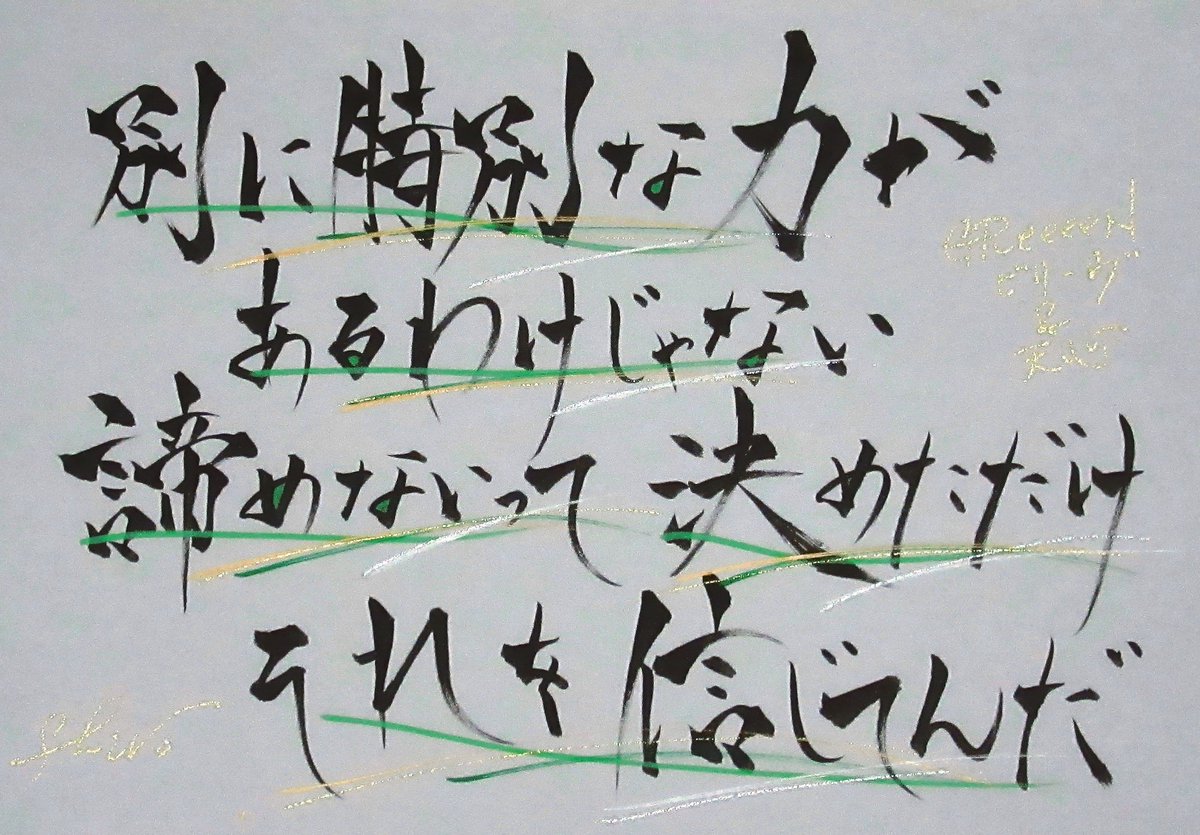 別に特別な力が
あるわけじゃない
諦めないって 決めただけ
それを信じてんだ
GReeeeN
ビリーヴ